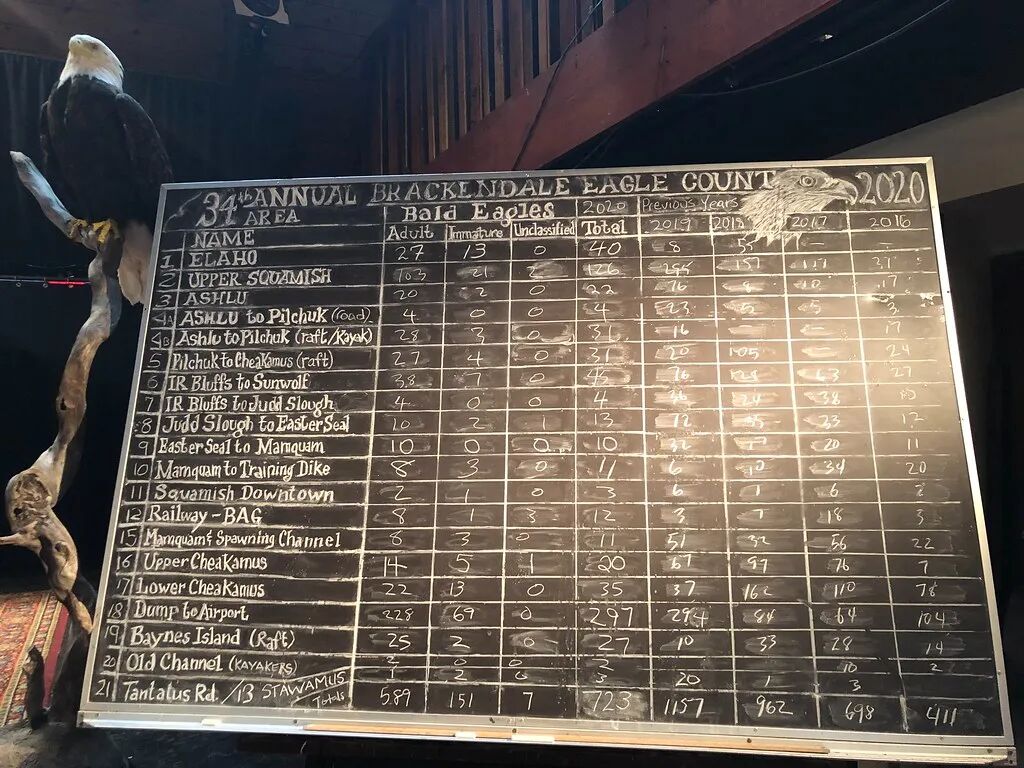 34th ANNUAL BRACKENDALE EAGLE COUNT 2020
AREA Bald Eagles 2020 Previous Years
NAME Adult Immature Unclassified Total 2019 2018 2017 2016
1 ELAHO 27 13 0 40 8 55 —
2 UPPER SQUAMISH 103 21 2 126 295 157 117
3 ASHLU 20 2 0 22 76 8 10 17
4A ASHLU to Pilchuk (road) 4 0 0 4 23 5 5 3
4B Ashlu to Pilchuk (raft/Kayak) 28 3 0 31 16 17
5 Pilchuk to Cheakamus (raft) 27 4 0 31 20 105 0 24
6 IR Bluffs to Sunwolf 38 7 0 45 76 63 27
7 IR Bluffs to Judd Slough 4 0 0 4 36 24 38
8 Judd Slough to Easter Seal 10 2 1 13 72 55 23 12
9 Easter Seal to Mamquam 10 0 0 10 32 17 20 11
10 Mamquam to Training Dike 8 3 0 11 6 10 34 20
11 Squamish Downtown 2 1 0 3 6 1 6
12 Railway - BAG 8 1 3 12 3 7 18 3
15 Mamquam & Spawning Channel 8 3 0 11 51 32 56 22
16 Upper Cheakamus 14 5 1 20 67 97 76 7
17 Lower Cheakamus 22 13 0 35 37 162 110 78
18 Dump to Airport 228 69 0 297 294 84 64 104
19 Baynes Island (Raft) 25 2 0 27 10 33 28 14
20 Old Channel (KAYAKERS) 2 0 0 2 10 2
21 Tantalus Rd. /13 STAWAMUS 1 2 0 3 20 1 3
Totals 589 151 7 723 1157 962 698 411